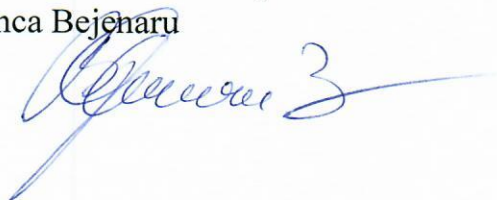 nca Bejenaru